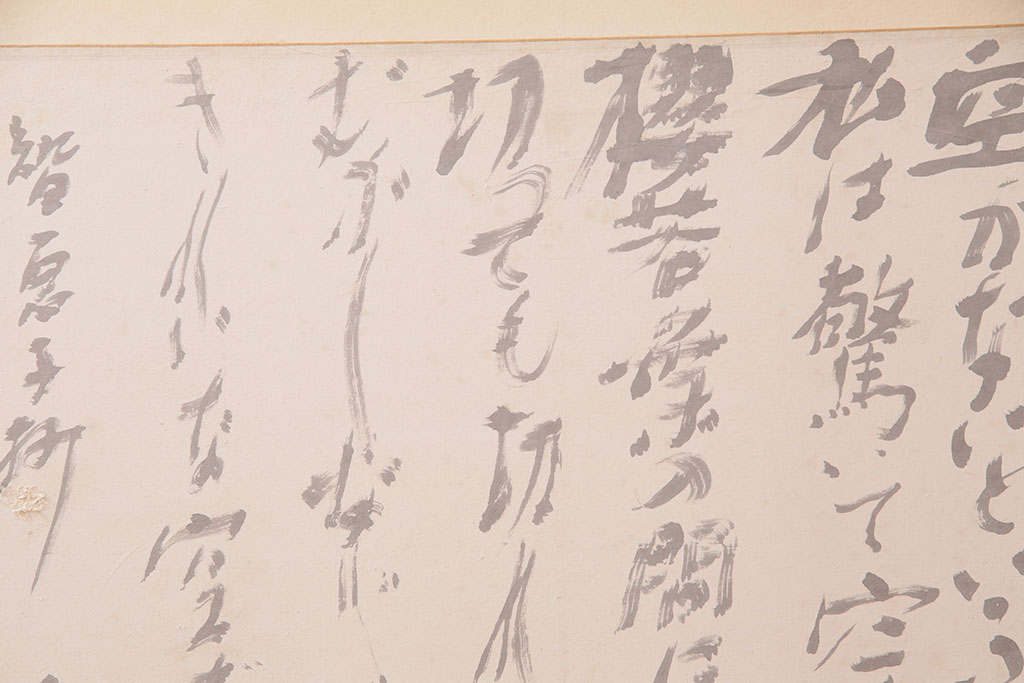 空がないといふ
私は驚いて空
櫻若葉の間に
切つても切れ
むかしなじ
きれいな空だ
智恵子抄